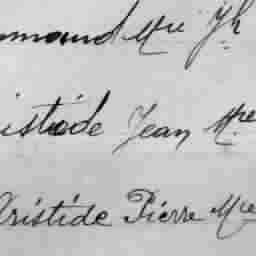 mmand Mie Jh
istide Jean Mre
Aristide Pierre Mie